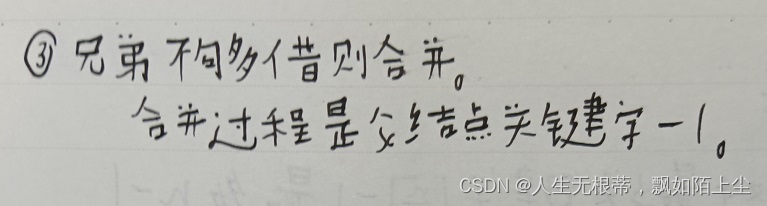 ③ 兄弟不够多借则合并。
合并过程是父结点关键字-1。
CSDN @人生无根蒂，飘如陌上尘